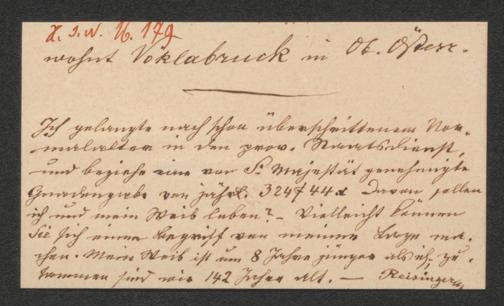 d. s. W. N. 179
wohnt Voklabruck in Ob. Österr.
Ich gelangte nach schon überschrittenem Nor-
malalter in den prov. Staatsdienst,
und beziehe eine von Sr Majestät genehmigte
Gnadengabe von jährl. 324 f 44 x davon sollen
ich und mein Weib leben? – Vielleicht können
Sie sich einen Begriff von meiner Lage ma-
chen. Mein Weib ist um 8 Jahre jünger als ich, zu-
sammen sind wir 142 Jahre alt. — Reisinger